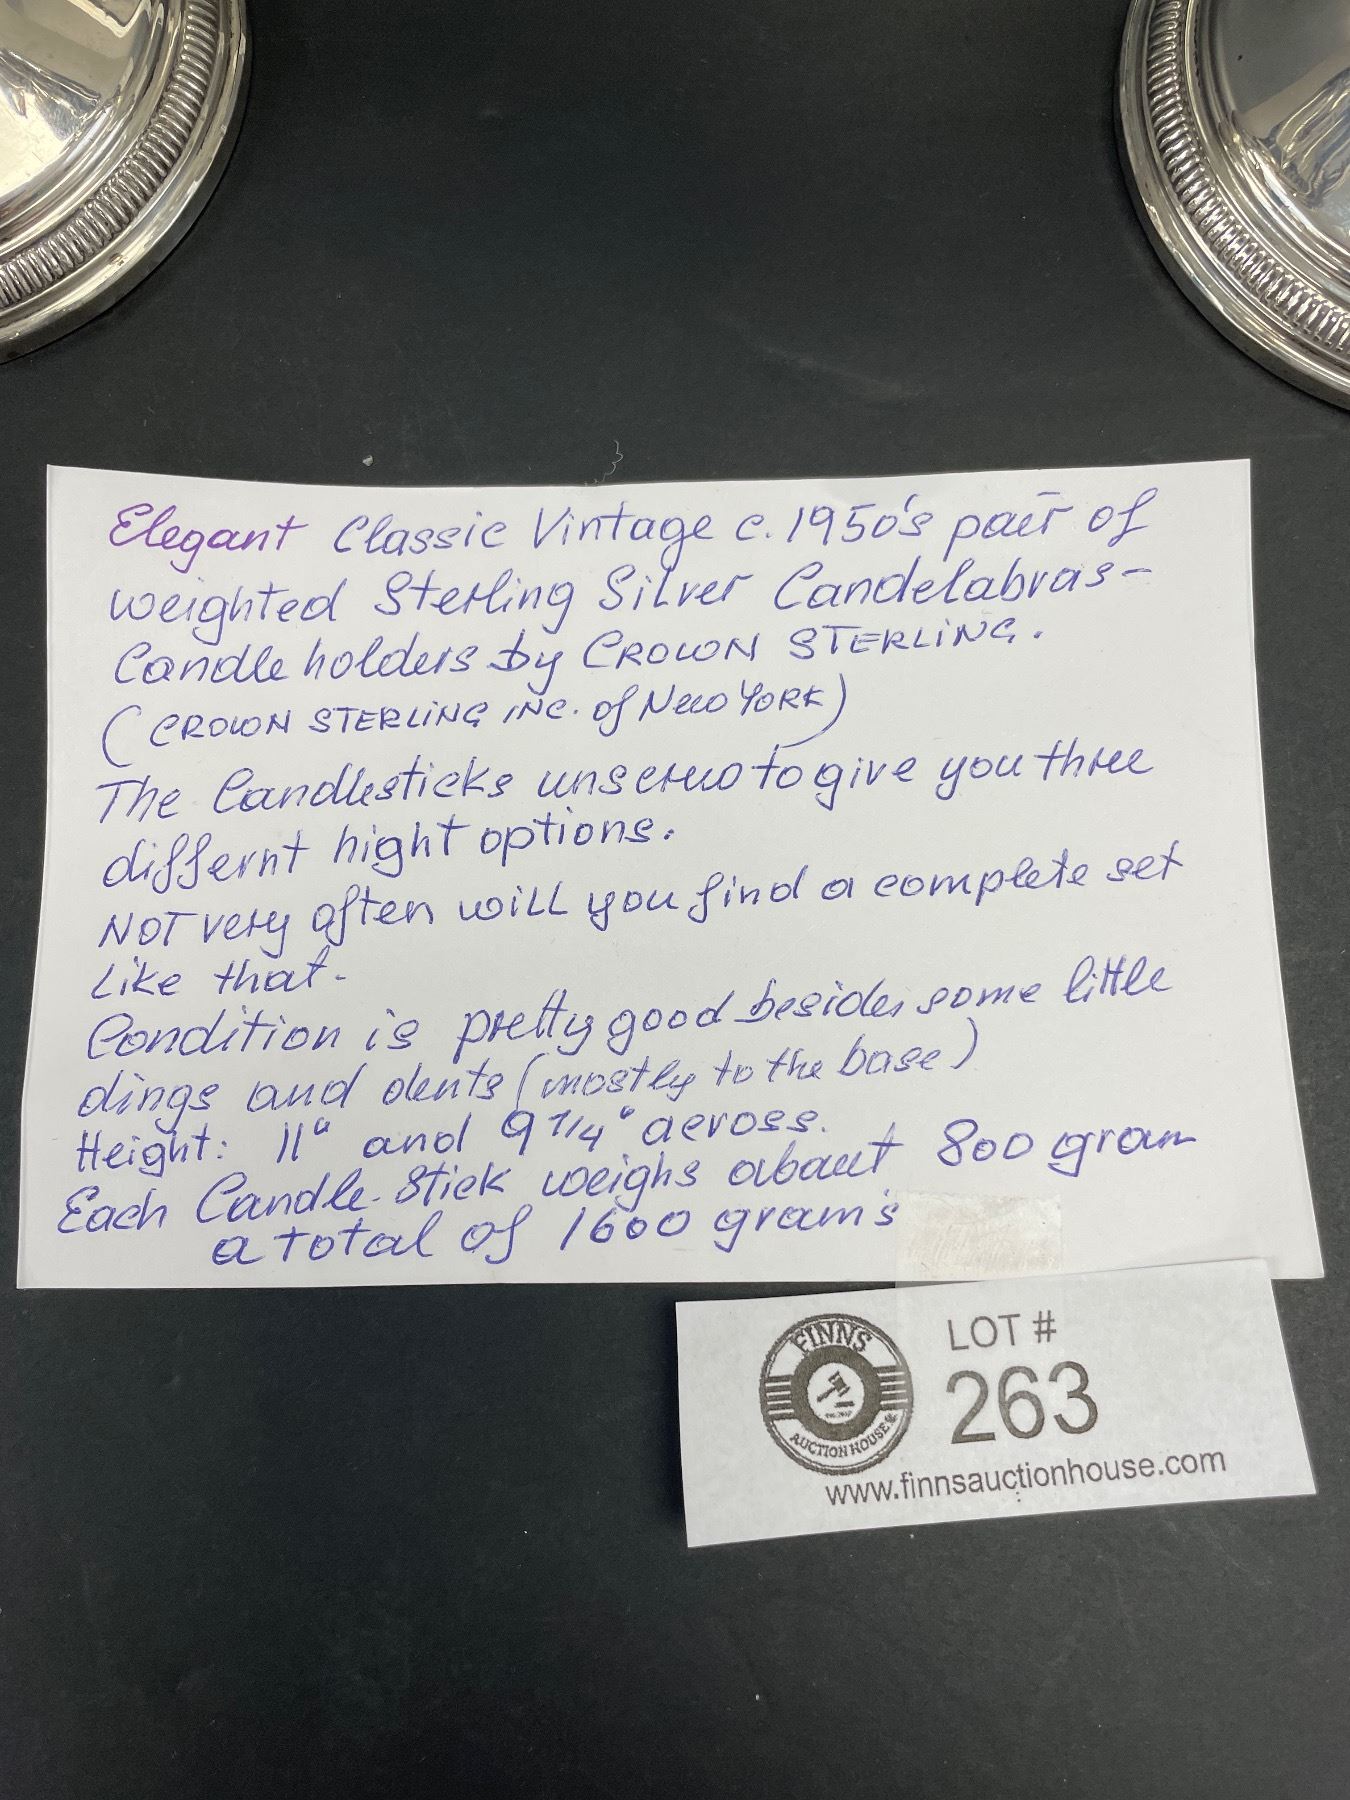 Elegant Classic Vintage c. 1950's pair of
weighted Sterling Silver Candelabras-
Candle holders by CROWN STERLING.
(CROWN STERLING INC. of New YORK)
The Candlesticks unscrew to give you three
differnt hight options.
NOT very often will you find a complete set
Like that.
Condition is pretty good besides some little
dings and dents (mostly to the base)
Height: 11" and 9 1/4" across.
Each Candle-Stick weighs about 800 gram
a total of 1600 grams
FINNS
AUCTION HOUSE
LOT #
263
www.finnsauctionhouse.com